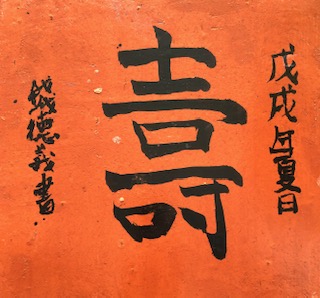 戊戌年夏日
壽
德義書